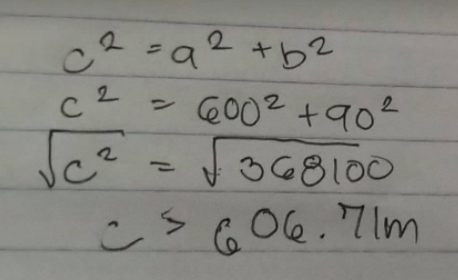 c² = a² + b²
c² = 600² + 90²
√c² = √368100
c = 606.71m